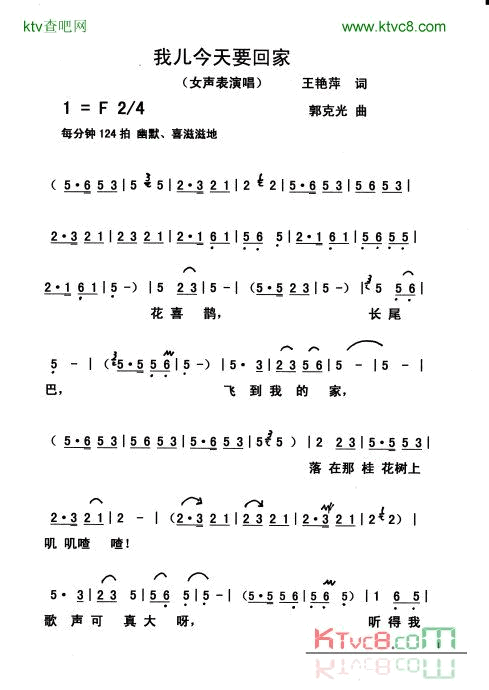 ktv查吧网
www.ktvc8.com
我儿今天要回家
（女声表演唱） 王艳萍 词
1 = F 2/4 郭克光 曲
每分钟 124 拍 幽默、喜滋滋地
( 5·6 5 3 | 5 3 5 | 2·3 2 1 | 2 2 | 5·6 5 3 | 5·6 5 3 |
2·3 2 1 | 2 3 2 1 | 2·1 6 1 | 5 6 5 | 2·1 6 1 | 5 6 5 5 |
2·1 6 1 | 5 - ) | 5 2 3 | 5 - | ( 5·5 2 3 | 5 - ) | 5 5 6 |
花喜 鹊， 长尾
5 - | ( 5·5 5 6 | 5 - ) | 5· 3 | 2 3 5 6 | 5 - | 5 - |
巴， 飞 到 我 的 家，
( 5·6 5 3 | 5 6 5 3 | 5·6 5 3 | 5 5 ) | 2 2 3 | 5·5 5 3 |
落 在那 桂 花树上
2·3 2 1 | 2 - | ( 2·3 2 1 | 2 3 2 1 | 2·3 2 1 | 2 2 ) |
叽 叽喳 喳！
5· 3 | 2 3 2 | 5 6 5 | 5 - | ( 5·5 5 6 | 5 6 5 ) | 1 6 5 |
歌 声 可 真 大 呀， 听 得 我
KTvc8.com
1